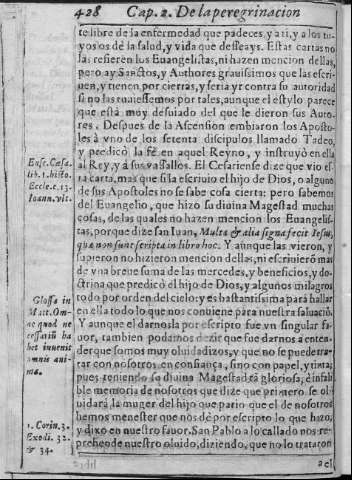 428 Cap. 2. De la peregrinacion
te libre de la enfermedad que padeces, y a ti, y a los tu-
yos os dè la salud, y vida que desseays. Estas cartas no
las refieren los Euangelistas, ni hazen mencion dellas,
pero ay Sanctos, y Authores grauissimos que las escri-
uen, y tienen por ciertas, y seria yr contra su autoridad
si no las tuuiessemos por tales, aunque el estylo parece
que està muy desuiado del que le dieron sus Auto-
res. Despues de la Ascension embiaron los Aposto-
les à vno de los setenta discipulos llamado Tadeo,
y predicò la fè en aquel Reyno, y instruyò en ella
al Rey, y à sus vasallos. El Cesariense dize que vio es-
ta carta, mas que si la escriuio el hijo de Dios, o alguno
de sus Apostoles no se sabe cosa cierta: pero sabemos
del Euangelio, que hizo su diuina Magestad muchas
cosas, de las quales no hazen mencion los Euangelis-
tas, porque dize san Iuan, Multa & alia signa fecit Iesus,
quæ non sunt scripta in libro hoc. Y aunque las vieron, y
supieron no hizieron mencion dellas, ni escriuierõ mas
de vna breue suma de las mercedes, y beneficios, y do-
ctrina que predicò el hijo de Dios, y algunos milagros
todo por orden del cielo: y es bastantissima para hallar
en ella todo lo que nos conuiene para nuestra saluaciõ.
Y aunque el darnosla por escripto fue vn singular fa-
uor, tambien podamos dezir que fue darnos a enten-
der que somos muy oluidadizos, y que no se puede tra-
tar con nosotros en confiança, sino con papel, y tinta;
pues teniendo su diuina Magestad tã gloriosa, è infali-
ble memoria de nosotros que dize que primero se ol-
uidarà la muger del hijo que pario que el de nosotros
hemos menester que nos dè por escripto lo que hazo,
y dixo en nuestro fauor. San Pablo a lo callado nos re-
prehende nuestro oluido, diziendo, que no lo trataron
Euse. Cesa.
lib. 1. histo.
Eccle. c. 13.
Ioann. vlt.
Glossa in
Matt. Om-
ne quod ne
cessariũ ha
bet inuenit
omnis ani-
ma.
1. Corin. 3.
Exodi. 32.
& 34.